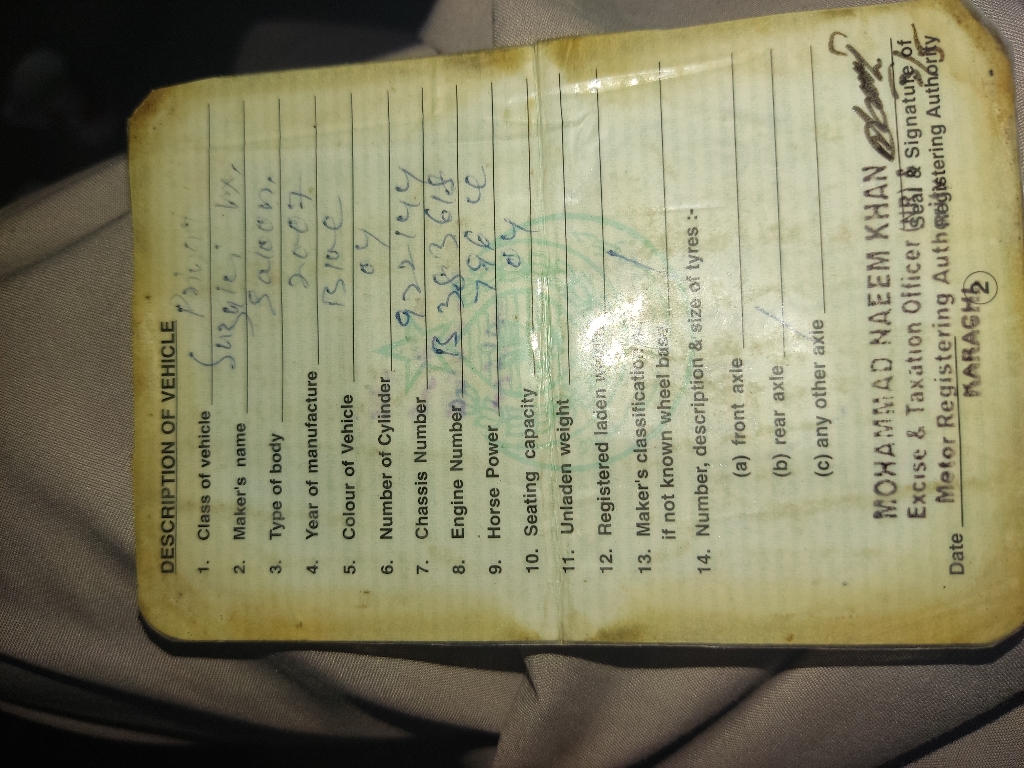 DESCRIPTION OF VEHICLE
1. Class of vehicle
2. Maker's name
3. Type of body Saloon.
4. Year of manufacture 2007
5. Colour of Vehicle
6. Number of Cylinder 04
7. Chassis Number 922144
8. Engine Number B 383618
9. Horse Power 796 CC
10. Seating capacity 04
11. Unladen weight
12. Registered laden
13. Maker's classification
if not known wheel base
14. Number, description & size of tyres :-
(a) front axle
(b) rear axle
(c) any other axle
MOHAMMAD NAEEM KHAN
Excise & Taxation Officer
Seal & Signature of
Motor Registering Authority
Registering Authority
KARACHI
Date
2